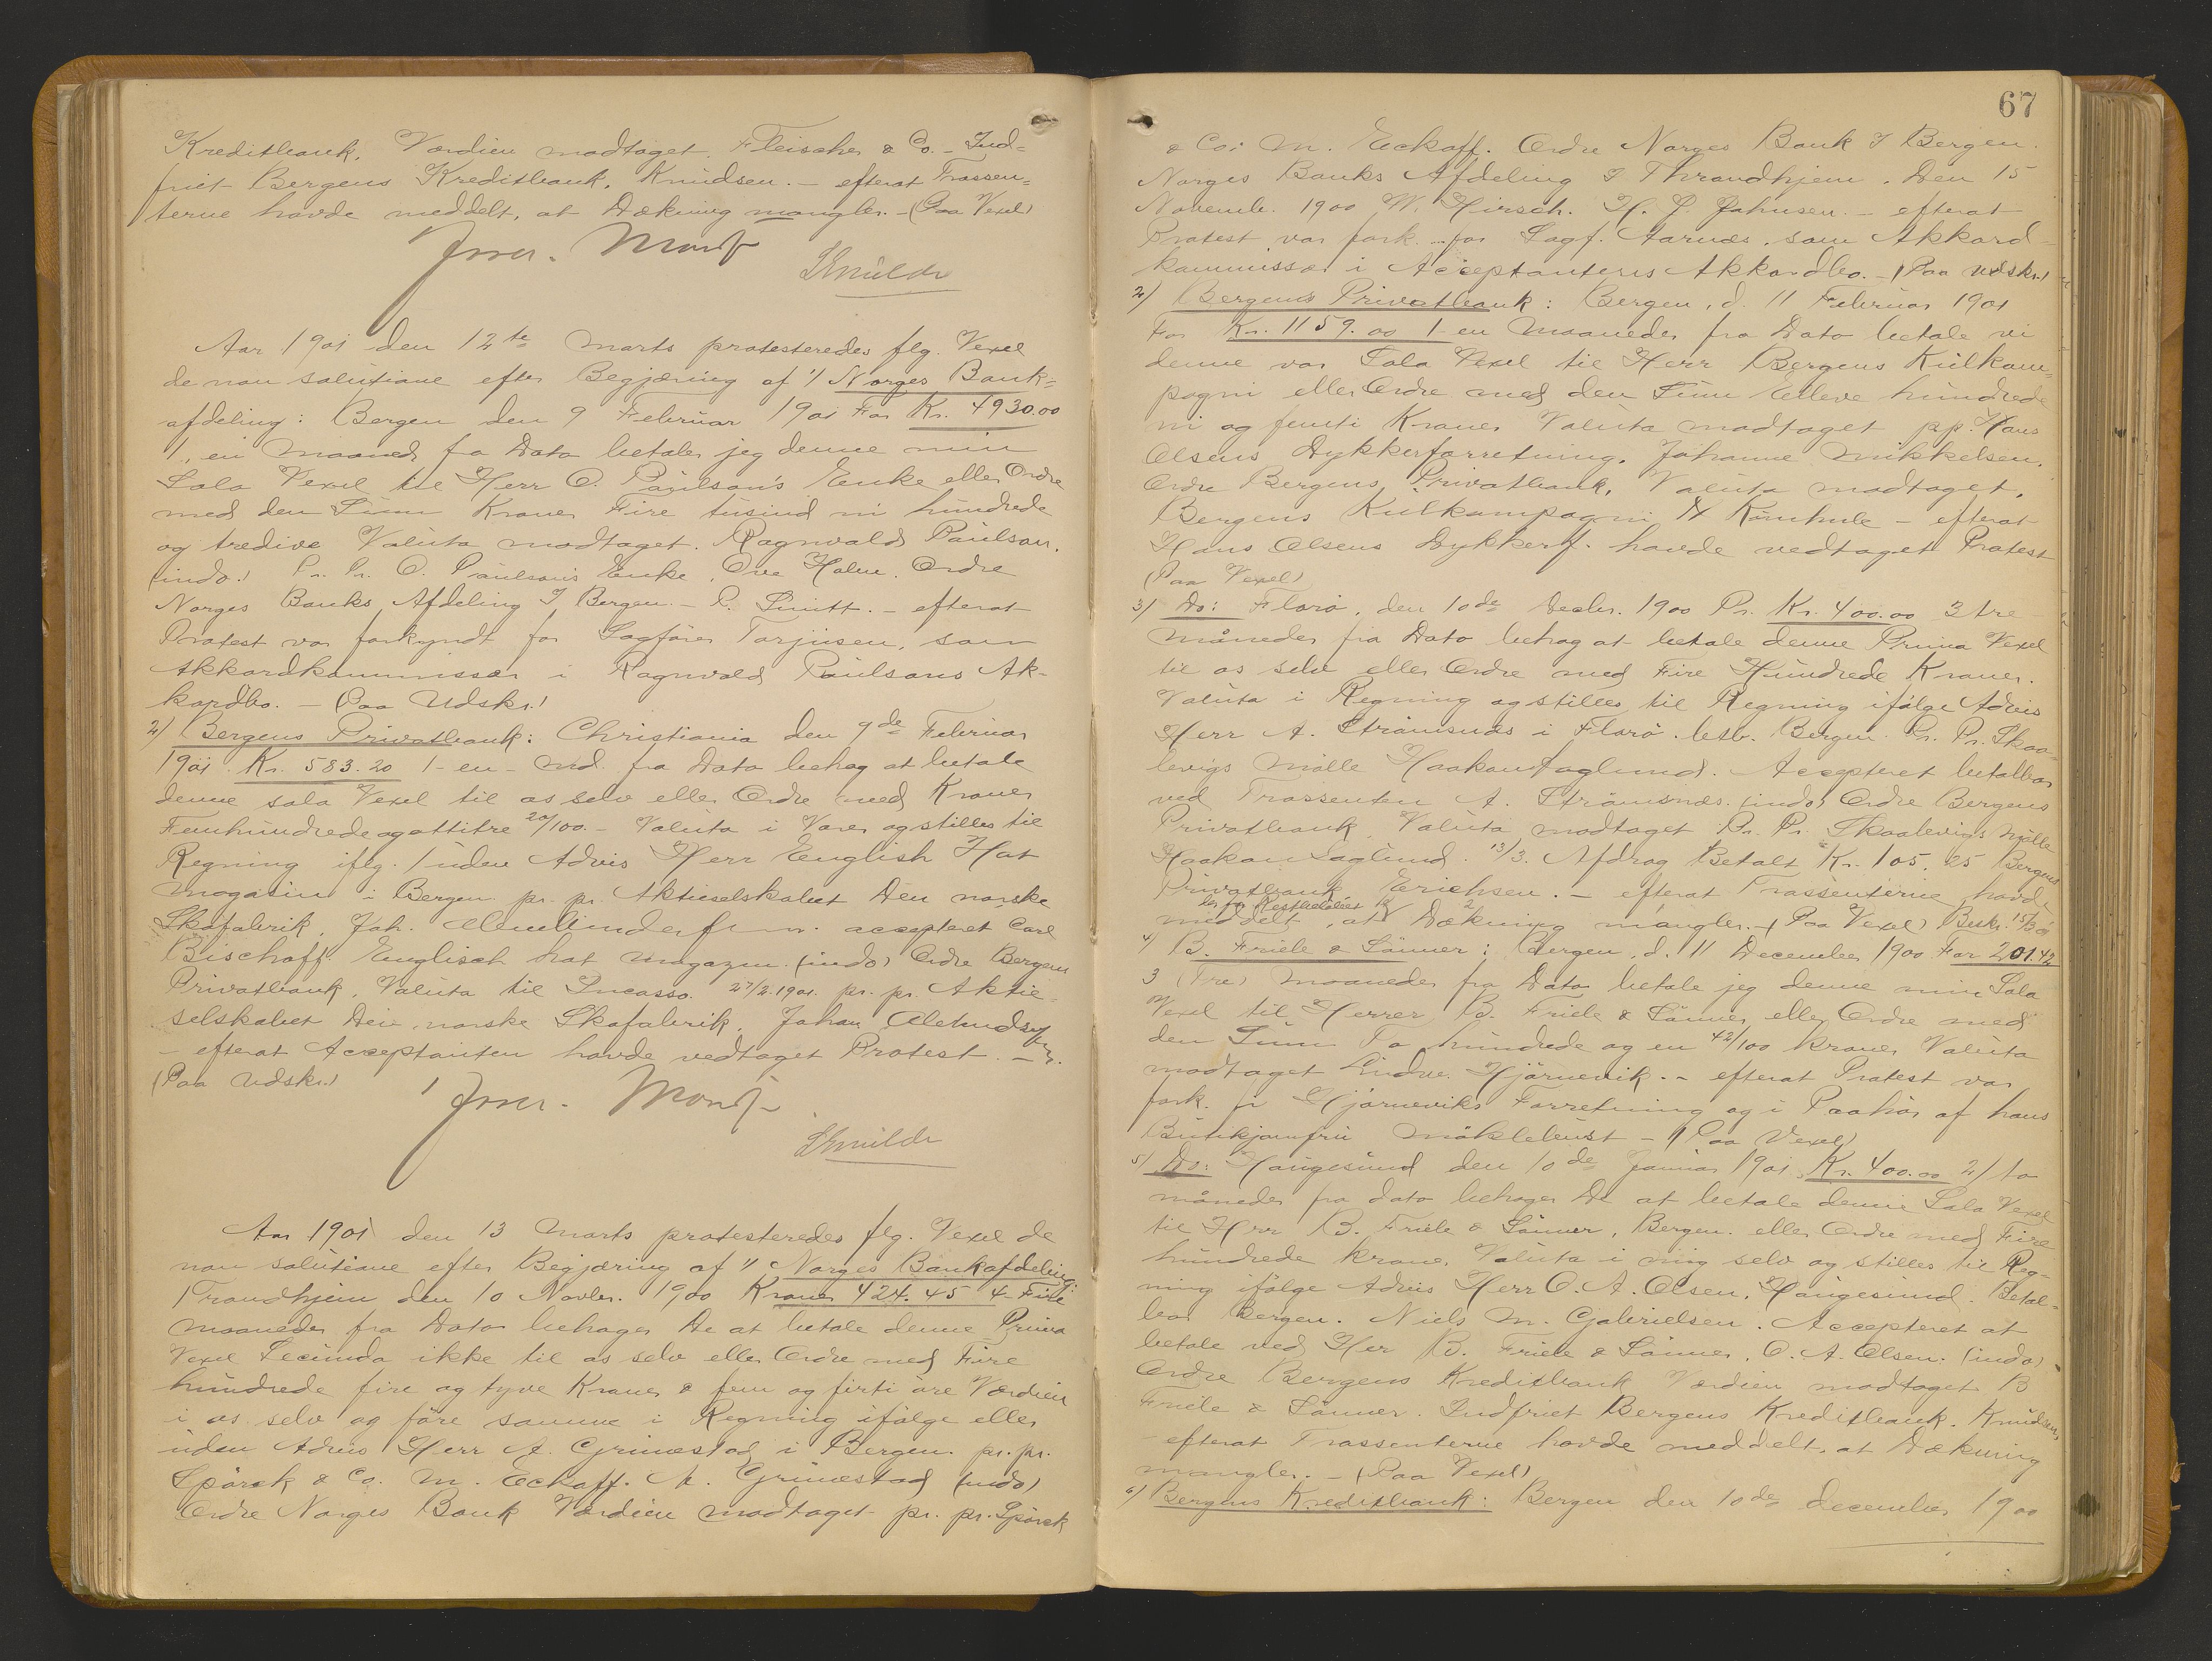 Kreditbank. Værdien modtaget. Fleischer & Co. - Ind=
friet Bergens Kreditbank. Knudsen. - efterat Trassen=
terne havde meddelt, at Dækning mangler. - (Paa Vexel)
Aar 1901 den 12te Marts protesteredes flg. Vexel
de non solutione efter Begjæring af 1/ Norges Bank=
afdeling: Bergen den 9 Februar 1901 For Kr. 4930.00
1, en Maaned fra Dato betaler jeg denne min
Sola Vexel til Herr O. Paulson's Enke eller Ordre
med den Sum Kroner Fire tusind ni hundrede
og tredive Valuta modtaget. Ragnvald Paulson.
(indo.) Pr. Pr. O. Paulson's Enke, Ove Holm. Ordre
Norges Banks Afdeling I Bergen. - P. Smitt. - efterat
Protest var forkyndt for Sagfører Torjusen, som
Akkordkommissær i Ragnvald Paulsons Ak-
kordbo. - (Paa Udskr.)
2) Bergens Privatbank: Christiania den 9de Februar
1901. Kr. 583.20 1 - en - Md. fra Dato behag at betale
denne sola Vexel til os selv eller Ordre med Kroner
Femhundrede og ottitre 20/100. - Valuta i Varer og stilles til
Regning iflg. / uden Advis Herr English Hat
Magasin i Bergen pr. pr. Aktieselskabet Den norske
Skofabrik. Joh. accepteret Carl
Bischoff. Englisch hat Magazin. (indo) Ordre Bergens
Privatbank, Valuta til Incasso. 27/2.1901. pr. pr. Aktie=
selskabet Den norske Skofabrik. Johan
- efterat Acceptanten havde vedtaget Protest. -
(Paa Udskr.)
Aar 1901 den 13 Marts protesteredes flg. Vexel de
non solutione efter Begjæring af 1/ Norges Bankafdeling:
Trondhjem den 10 Novbr. 1900 Kroner 424.45 4 Fire
maaneder fra Dato behager De at betale denne Prima
Vexel Secunda ikke til os selv eller Ordre med Fire
hundrede fire og tyve Kroner & fem og firti øre Værdien
i os selv og føre samme i Regning ifølge eller
uden Advis Herr A. Grimestad i Bergen. pr. pr.
Spørck & Co. M. Eckoff. A. Grimestad (indo)
Ordre Norges Bank Værdien modtaget pr. pr. Spørck
67
& Co: M. Eckoff. Ordre Norges Bank I Bergen.
Norges Banks Afdeling I Throndhjem. Den 15
Novembr. 1900 W. Hirsch. H. J. Johnsen. - efterat
Protest var fork. for Sagf. Aarnæs, som Akkord=
kommissær i Acceptantens Akkordbo. - (Paa Udskr.)
2) Bergens Privatbank: Bergen, d. 11 Februar 1901
For Kr. 1159.00 1 en Maaneder fra Dato betale vi
denne vor Sola Vexel til Herr Bergens Kulkom=
pagni eller Ordre med den Sum Elleve hundrede
ni og femti Kroner Valuta modtaget pp. Hans
Olsens Dykkerforretning. Johanne Mikkelsen.
Ordre Bergens Privatbank, Valuta modtaget.
Bergens Kulkompagni - efterat
Hans Olsens Dykkerf. havde vedtaget Protest
(Paa Vexel)
3) Do: Florø, den 10de Decbr. 1900 Pr. Kr. 400.00 3 tre
måneder fra Dato behag at betale denne Prima Vexel
til os selv eller Ordre med Fire Hundrede Kroner.
Valuta i Regning og stilles til Regning ifølge Advis
Herr A. Strømsnæs i Florø. betb. Bergen. Pr. Pr. Skaa-
levigs Mølle Haakon Faglund. Accepteret betalbar
ved Trassenten A. Strømsnæs. (indo) Ordre Bergens
Privatbank. Valuta modtaget Pr. Pr. Skaalevigs Mølle
Haakon Faglund. 13/3. Afdrag Betalt Kr. 105.25 Bergens
Privatbank. Erichsen. - efterat Trassenterne havde
for Restbeløbet
meddelt, at Dækning mangler. - (Paa Vexel) 15/3 01
4) B. Friele & Sønner: Bergen, d. 11 December 1900 For 201.42
3 (Tre) Maaneder fra Dato betale jeg denne min Sola
Vexel til Herrer B. Friele & Sønner eller Ordre med
den Sum To hundrede og en 42/100 kroner Valuta
modtaget Endre Hjørnevik. - efterat Protest var
fork. fr Hjørneviks Forretning og i Paahør af hans
Butikjomfru Møklebust - (Paa Vexel)
5) Do: Haugesund den 10de Januar 1901. Kr. 400.00 2/ to
måneder fra dato behager De at betale denne Sola Vexel
til Hrr B. Friele & Sønner, Bergen. eller Ordre med Fire
hundrede kroner, Valuta i mig selv og stilles til Reg-
ning ifølge Advis Herr O. A. Olsen, Haugesund. Betal=
bar Bergen. Niels M. Gabrielsen. Accepteret at
betale ved Her B. Friele & Sønner. O. A. Olsen. (indo)
Ordre Bergens Kreditbank Værdien modtaget B
Friele & Sønner. Indfriet Bergens Kreditbank. Knudsen,
- efterat Trassenterne havde meddelt, at Dækning
mangler. - (Paa Vexel)
6) Bergens Kreditbank: Bergen den 10de december 1900